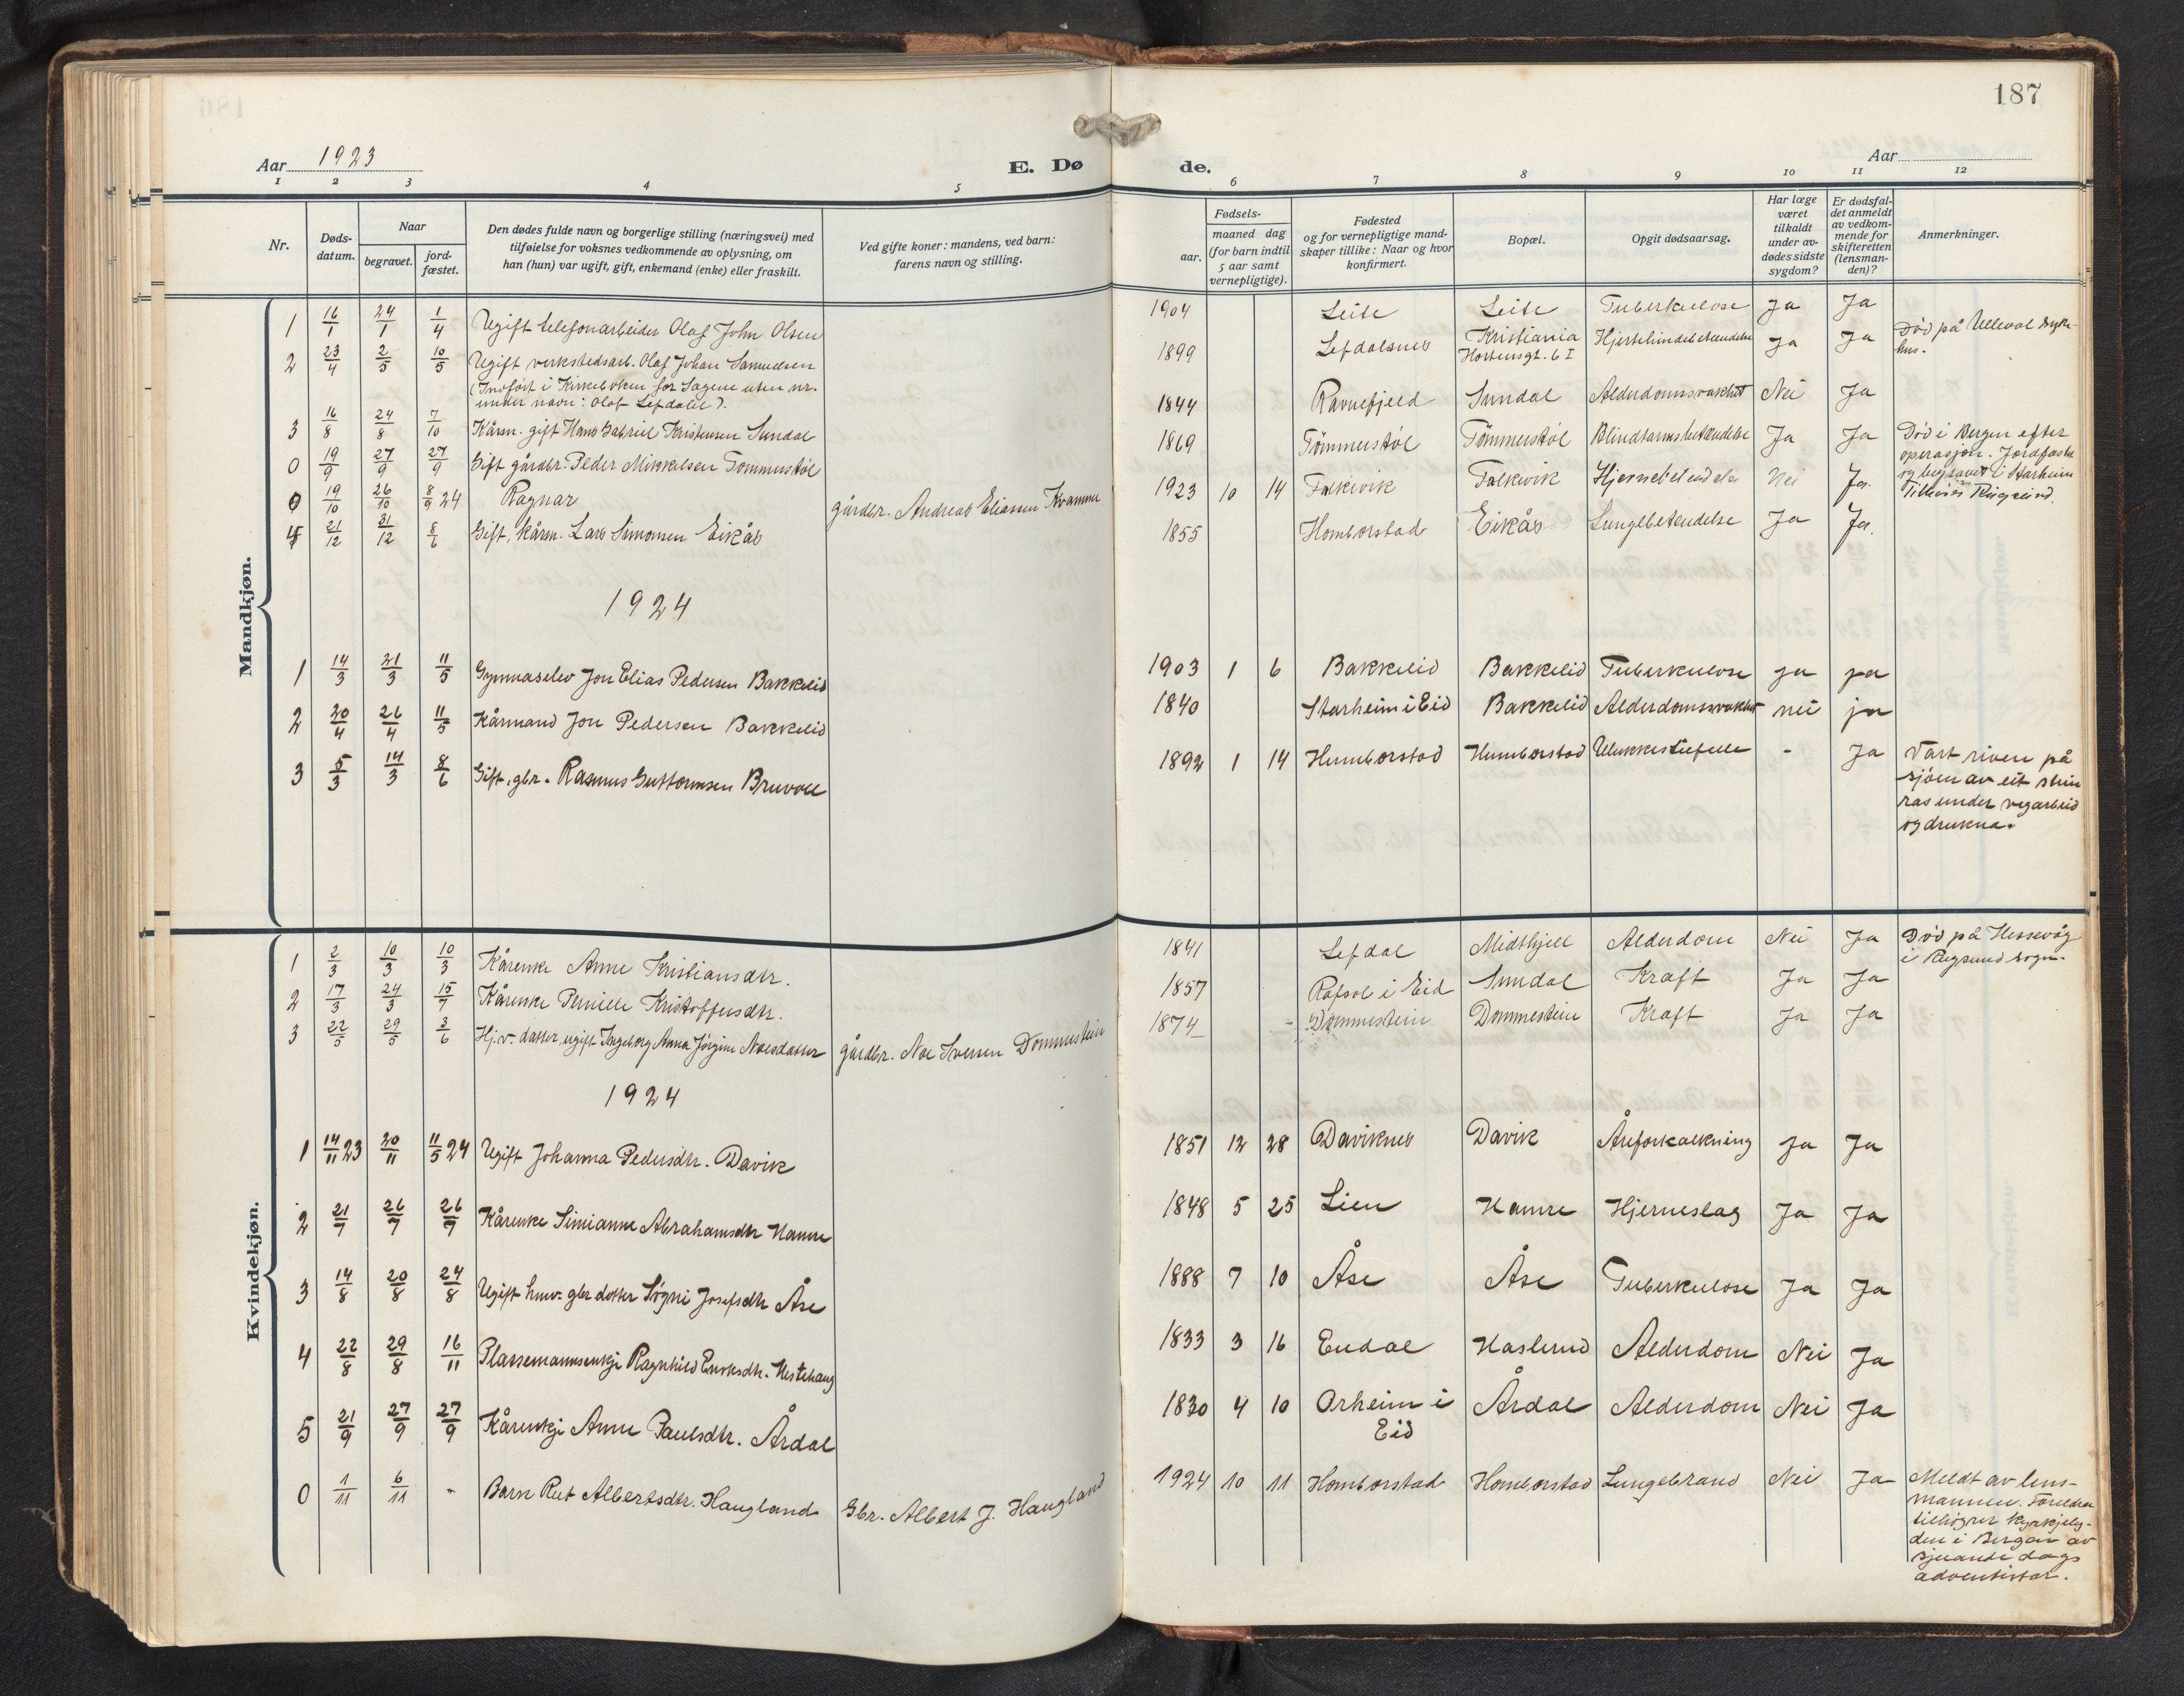 187
Aar 1923 E. Dø de. Aar
1 2 3 4 5 6 7 8 9 10 11 12
Nr. Døds-datum. Naar begravet. jord-fæstet. Den dødes fulde navn og borgerlige stilling (næringsvei) med tilføielse for voksnes vedkommende av oplysning, om han (hun) var ugift, gift, enkemand (enke) eller fraskilt. Ved gifte koner: mandens, ved barn: farens navn og stilling. Fødsels- aar. maaned dag (for barn indtil 5 aar samt vernepligtige). Fødested og for vernepligtige mand-skaper tillike: Naar og hvor konfirmert. Bopæl. Opgit dødsaarsag. Har læge været tilkaldt under av-dødes sidste sygdom? Er dødsfal-det anmeldt av vedkom-mende for skifteretten (lensman-den)? Anmerkninger.
Mandkjøn.
1 16/1 24/1 1/4 Ugift telefonarbeider Olaf John Olsen 1904 Leite Leite Tuberkulose Ja Ja
2 23/4 2/5 10/5 Ugift verkstedsarb. Olaf Johan Samuelsen 1899 Lefdalsnes Kristiania Hjertehindebetændelse Ja Ja Død på Ulleval syke-
(Indført i Kirkeboken for Sagene uten nr. Hortensgt. 6 I hus.
under navn: Olaf Lefdalei).
3 16/8 24/8 7/10 Kårm. gift Hans Gabriel Kristensen Sundal 1844 Ravnefjeld Sundal Alderdomssvakhet Nei Ja
0 19/9 27/9 27/9 Gift gårdbr. Peder Mikkelsen Tømmerstøl 1869 Tømmerstøl Tømmerstøl Blindtarmsbetændelse Ja Ja Død i Bergen efter
operasjon. Jordfæstet
og begravet i Starheim
0 19/10 26/10 8/9 24 Ragnar gårdbr. Andreas Eliassen Kvamme 1923 10 14 Falkevik Falkevik Hjernebetendelse Nei Ja.
4 21/12 31/12 8/6 Gift, kårm. Lars Simonsen Eikås 1855 Homborstad Eikås Lungebetendelse Ja Ja.
1924
1 14/3 21/3 11/5 Gymnaselev Jon Elias Pedersen Bakkelid 1903 1 6 Bakkelid Bakkelid Tuberkulose ja ja
2 20/4 26/4 11/5 Kårmand Jon Pedersen Bakkelid 1840 Starheim i Eid Bakkelid Alderdomssvakhet nei ja
3 5/3 14/3 8/6 Gift, gbr. Rasmus Guttormsen Bruvoll 1892 1 14 Humborstad Humborstad Ulukkestilfelle - Ja Vart riven på
sjøen av eit stein
ras under vegarbeid
og drukna.
Kvindekjøn.
1 2/3 10/3 10/3 Kårenke Anne Kristiansdtr. 1841 Lefdal Midthjell Alderdom Nei Ja Død på Hessevåg
i Rugsund sogn.
2 17/3 24/3 15/7 Kårenke Pernille Kristoffersdtr. 1857 Rafsol i Eid Sundal Kraft Ja Ja
3 22/5 29/5 3/6 Hj.v. datter, ugift Ingeborg Anna Jørgine Noesdatter gårdbr. Noe Iversen Dommestein 1874 Dommestein Dommestein Kraft Ja Ja
1924
1 14/11 23 20/11 11/5 24 Ugift Johanna Pedersdtr. Davik 1851 12 28 Daviknes Davik Åreforkalkning Ja Ja
2 21/7 26/7 26/7 Kårenke Simianne Abrahamsdtr Hamre 1848 5 25 Lien Hamre Hjerneslag Ja Ja
3 14/8 20/8 24/8 Ugift husv. gbr dotter Søgni Josefsdtr Åse 1888 7 10 Åse Åse Tuberkulose Ja Ja
4 22/8 29/8 16/11 Plassemannsenkje Ragnhild Enoksdtr. Hestehaug 1833 3 16 Endal Haslund Alderdom Nei Ja
5 21/9 27/9 27/9 Kårenkje Anne Paulsdtr. Årdal 1830 4 10 Orheim i Årdal Alderdom Nei Ja
Eid
0 1/11 6/11 - Barn Rut Albertsdtr. Haugland Gbr. Albert J. Haugland 1924 10 11 Homborstad Homborstad Lungebrand Nei Ja Meldt av lens-
mannen. Foreldra
tilhøyrer kyrkjely-
den i Bergen av
sjuande dags
adventistar.